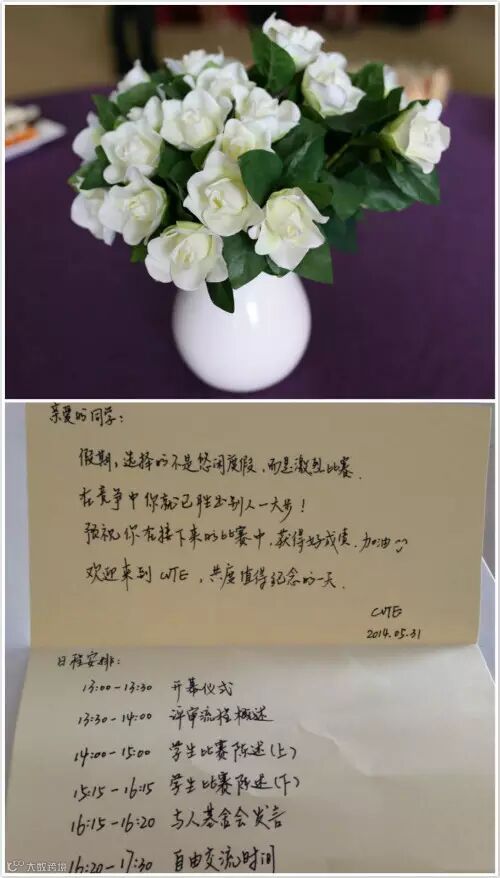 亲爱的同学：
假期，选择的不是悠闲度假，而是激烈比赛.
在竞争中你就已胜出别人一大步！
预祝你在接下来的比赛中，获得好成绩.加油
欢迎来到 CVTE，共度值得纪念的一天.
CVTE
2014.05.31
日程安排：
13:00-13:30 开幕仪式
13:30-14:00 评审流程概述
14:00-15:00 学生比赛陈述(上)
15:15-16:15 学生比赛陈述(下)
16:15-16:20 与人基金会发言
16:20-17:30 自由交流时间
大数跨境